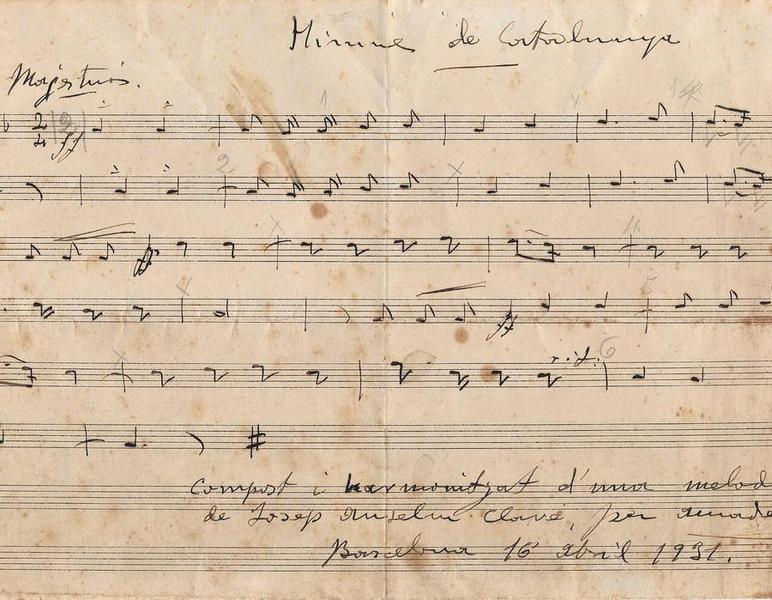 Himne de Catalunya
Majestuós.
ff
ff
ff
rit.
Compost i harmonitzat d'una melod
de Josep Anselm Clavé, per amade
Barcelona 16 abril 1931.